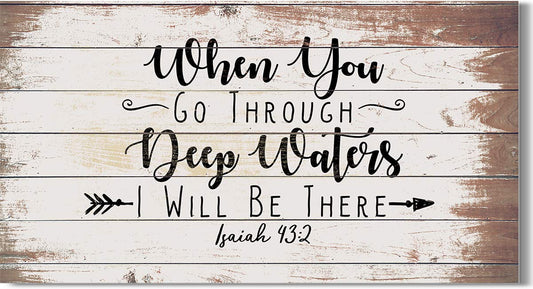 When You
Go Through
Deep Waters
I Will Be There
Isaiah 43:2